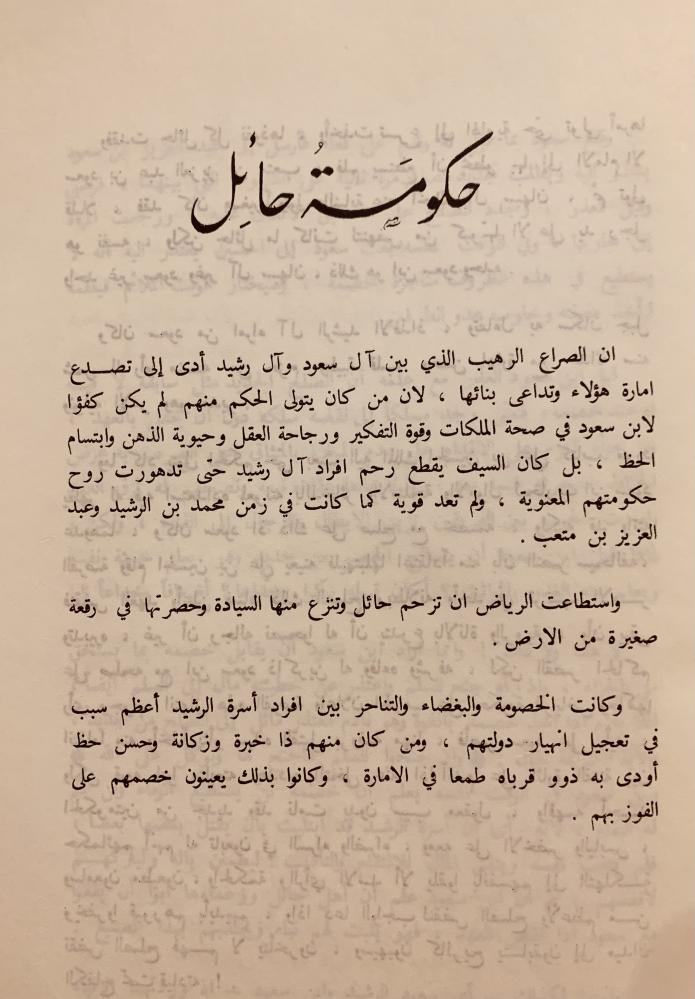 حكومة حائل
ان الصراع الرهيب الذي بين آل سعود وآل رشيد أدى إلى تصــدع
امارة هؤلاء وتداعى بنائها ، لان من كان يتولى الحكم منهم لم يكن كفؤا
لابن سعود في صحة الملكات وقوة التفكير ورجاحة العقل وحيوية الذهن وابتسام
الحظ ، بل كان السيف يقطع رحم افراد آل رشيد حتى تدهورت روح
حكومتهم المعنوية ، ولم تعد قوية كما كانت في زمن محمد بن الرشيد وعبد
العزيز بن متعب .
واستطاعت الرياض ان تزحم حائل وتنزع منها السيادة وحصرتها في رقعة
صغيرة من الارض .
وكانت الخصومة والبغضاء والتناحر بين افراد أسرة الرشيد أعظم سبب
في تعجيل انهيار دولتهم ، ومن كان منهم ذا خبرة وزكانة وحسن حظ
أودى به ذوو قرباه طمعا في الامارة ، وكانوا بذلك يعينون خصمهم على
الفوز بهم .